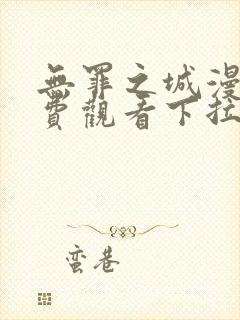 無罪之城漫
費觀看下拉
蛮巷